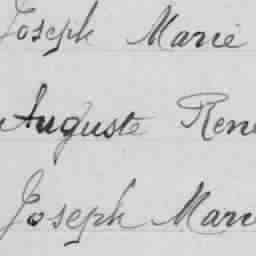 Joseph Marie
Auguste René
Joseph Marie